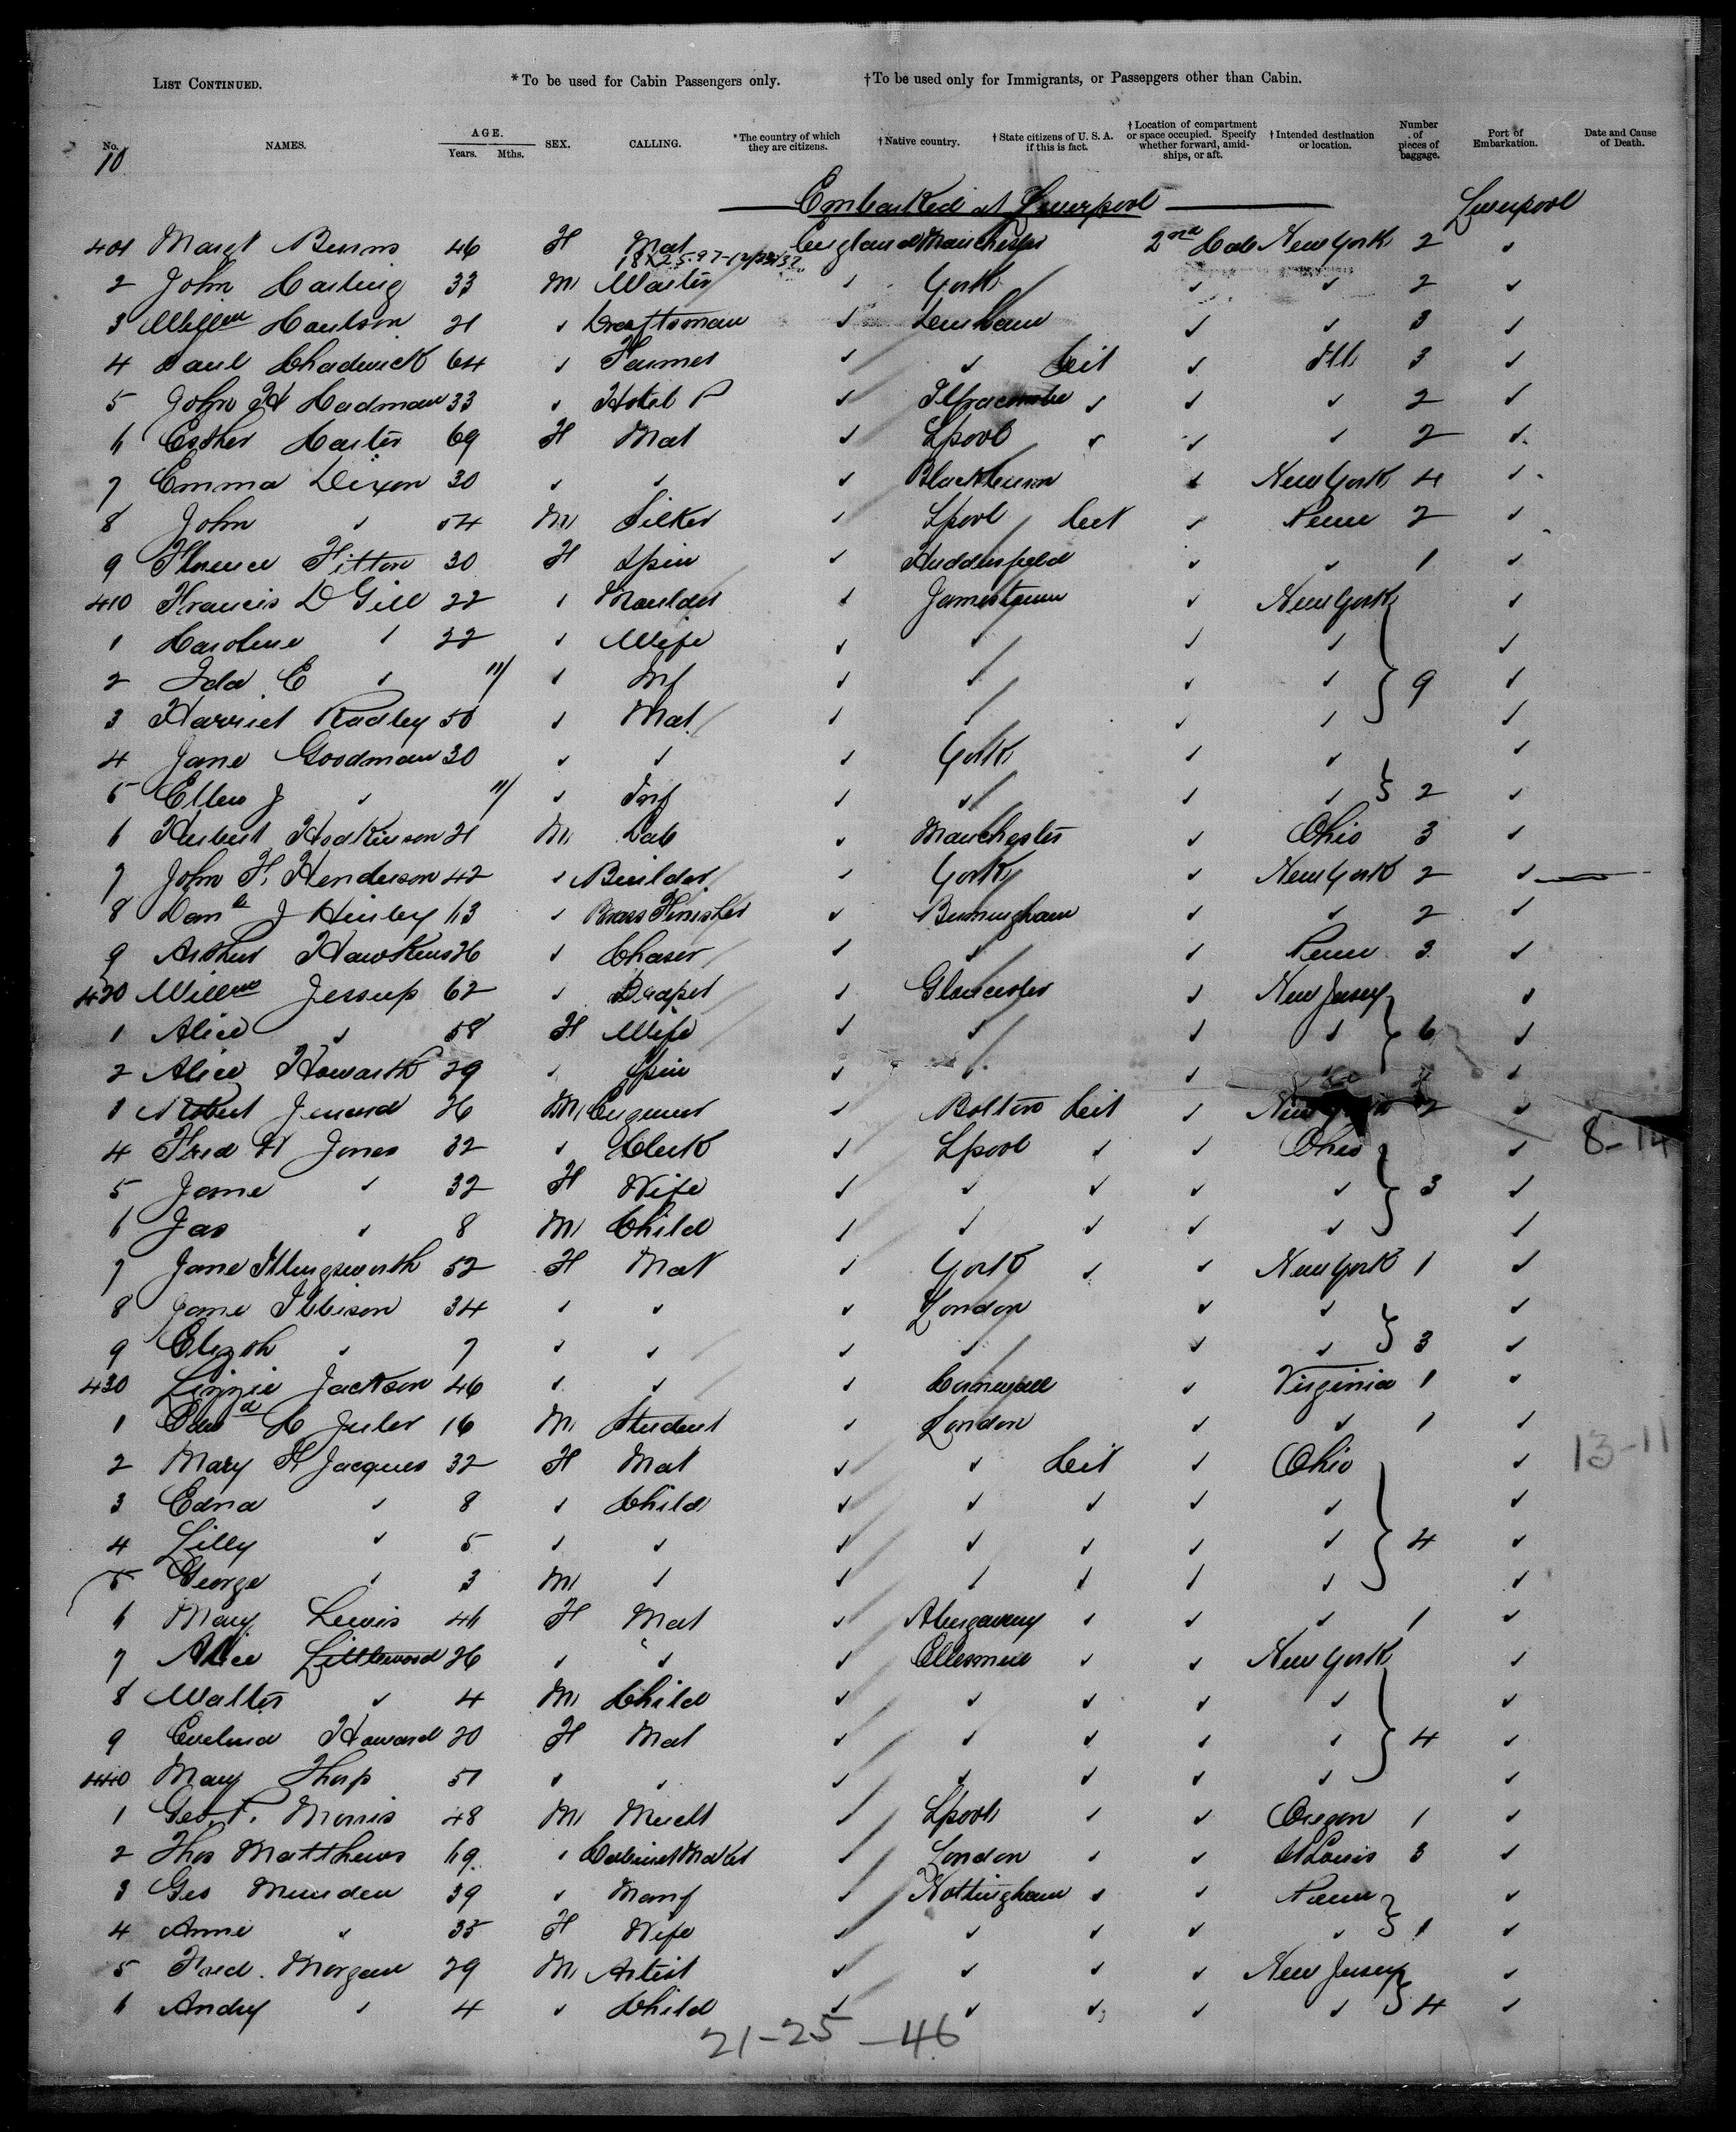 LIST CONTINUED. *To be used for Cabin Passengers only. †To be used only for Immigrants, or Passengers other than Cabin.
No. NAMES. AGE. Years. Mths. SEX. CALLING. *The country of which they are citizens. †Native country. †State citizens of U. S. A. if this is fact. †Location of compartment or space occupied. Specify whether forward, amidships, or aft. †Intended destination or location. Number of pieces of baggage. Port of Embarkation. Date and Cause of Death.
10
Embarked at Liverpool Liverpool
401 Margt Burns 46 F Mat England Manchester 2nd Cab New York 2 ✓
2 John Carling 33 M ✓ York ✓ ✓ 2 ✓
3 Willm 21 ✓ Draftsman ✓ ✓ ✓ 3 ✓
4 Saul Chadwick 64 ✓ Farmer ✓ ✓ Cit ✓ Ill 3 ✓
5 John H Cadman 33 ✓ Hotel P ✓ Ilfracombe ✓ ✓ ✓ 2 ✓
6 Esther Carter 69 F Mat ✓ Lpool ✓ ✓ ✓ 2 ✓
7 Emma Dixon 30 ✓ ✓ ✓ Blackburn ✓ New York 4 ✓
8 John ✓ 54 M ✓ Lpool Cit ✓ Penn 2 ✓
9 Florence Fitton 30 F Spin ✓ Huddersfield ✓ ✓ 1 ✓
410 Francis D Gill 22 ✓ Moulder ✓ Jamestown ✓ New York ✓
1 Caroline ✓ 22 ✓ Wife ✓ ✓ ✓ ✓ ✓
2 Ida E ✓ 11/ ✓ Inf ✓ ✓ ✓ ✓ 9 ✓
3 Harriet Radley 50 ✓ Mat ✓ ✓ ✓ ✓ ✓
4 Jane Goodman 30 ✓ ✓ ✓ York ✓ ✓ ✓
5 Ellen J ✓ 11/ ✓ Inf ✓ ✓ ✓ ✓ 2 ✓
6 Herbert Hodkinson 21 M Lab ✓ Manchester ✓ Ohio 3 ✓
7 John F. Henderson 42 ✓ Builder ✓ York ✓ New York 2 ✓
8 Danl J Hinley 63 ✓ Brass Finisher ✓ Birmingham ✓ ✓ 2 ✓
9 Arthur Hawkins 26 ✓ Chaser ✓ ✓ ✓ Penn 3 ✓
420 Willm Jessup 62 ✓ Draper ✓ Gloucester ✓ New Jersey ✓
1 Alice ✓ 58 F Wife ✓ ✓ ✓ ✓ 6 ✓
2 Alice Howarth 29 ✓ Spin ✓ ✓ ✓ ✓
3 Robert 26 M Engineer ✓ Bolton Cit ✓ New York 2 ✓
4 Fred H Jones 32 ✓ Clerk ✓ Lpool ✓ ✓ Ohio ✓ 8-14
5 Jane ✓ 32 F Wife ✓ ✓ ✓ ✓ ✓ 3 ✓
6 Jas ✓ 8 M Child ✓ ✓ ✓ ✓ ✓ ✓
7 Jane Illingsworth 52 F Mat ✓ York ✓ ✓ New York 1 ✓
8 Jane Ibbison 34 ✓ ✓ ✓ London ✓ ✓ ✓
9 Elizth ✓ 7 ✓ ✓ ✓ ✓ ✓ ✓ 3 ✓
430 Lizzie Jackson 46 ✓ ✓ ✓ Cornwall ✓ Virginia 1 ✓
1 Edwd C Juler 16 M Student ✓ London ✓ ✓ 1 ✓
2 Mary H Jacques 32 F Mat ✓ ✓ Cit ✓ Ohio ✓ 13-11
3 Edna ✓ 8 ✓ Child ✓ ✓ ✓ ✓ ✓ ✓
4 Lilly ✓ 5 ✓ ✓ ✓ ✓ ✓ ✓ ✓ 4 ✓
5 George ✓ 3 M ✓ ✓ ✓ ✓ ✓ ✓ ✓
6 Mary Lewis 46 F Mat ✓ Abergaveny ✓ ✓ ✓ 1 ✓
7 Alice Littlewood 26 ✓ ✓ ✓ Ellesmere ✓ ✓ New York ✓
8 Walter ✓ 4 M Child ✓ ✓ ✓ ✓ ✓ ✓
9 Evelina Howard 20 F Mat ✓ ✓ ✓ ✓ ✓ 4 ✓
440 Mary Thorp 51 ✓ ✓ ✓ ✓ ✓ ✓ ✓ ✓
1 Geo. P. Morris 48 M Mercht ✓ Lpool ✓ ✓ Oregon 1 ✓
2 Thos Matthews 69 ✓ Cabinet Maker ✓ London ✓ ✓ St Louis 3 ✓
3 Geo Munden 39 ✓ Manf ✓ Nottingham ✓ ✓ Penn ✓
4 Anne ✓ 35 F Wife ✓ ✓ ✓ ✓ ✓ 1 ✓
5 Fred. Morgan 29 M Artist ✓ ✓ ✓ ✓ New Jersey ✓
6 Andy ✓ 4 ✓ Child ✓ ✓ ✓ ✓ ✓ 4 ✓
21-25-46